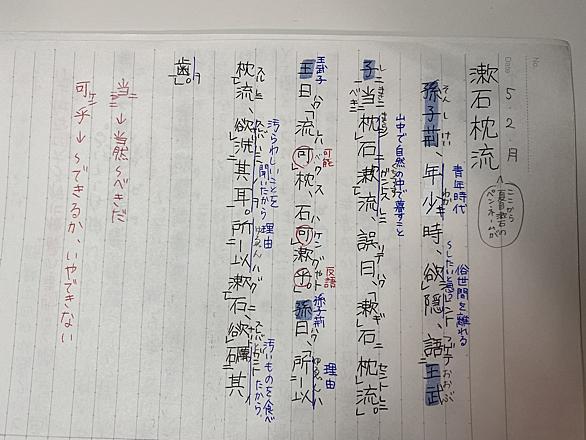 No.
Date 5.2月
漱石枕流
ここから夏目漱石のペンネームが
孫子荊、年少時、欲隠、語王武
そん し けい
青年時代
～したいと思う
俗世間を離れる
子「当枕石漱流、誤曰、漱石枕流。
山中で自然の中で暮すこと
王曰、「流可枕、石可漱乎。」孫曰、「所以
王武子
可能
反語
孫子荊
理由
枕流、欲洗其耳。所以漱石、欲礪其
汚らわしいことを聞いたから
理由
汚いものを食べたから
歯。」
当 → 当然～べきだ
可乎 → ～できるか、いやできない